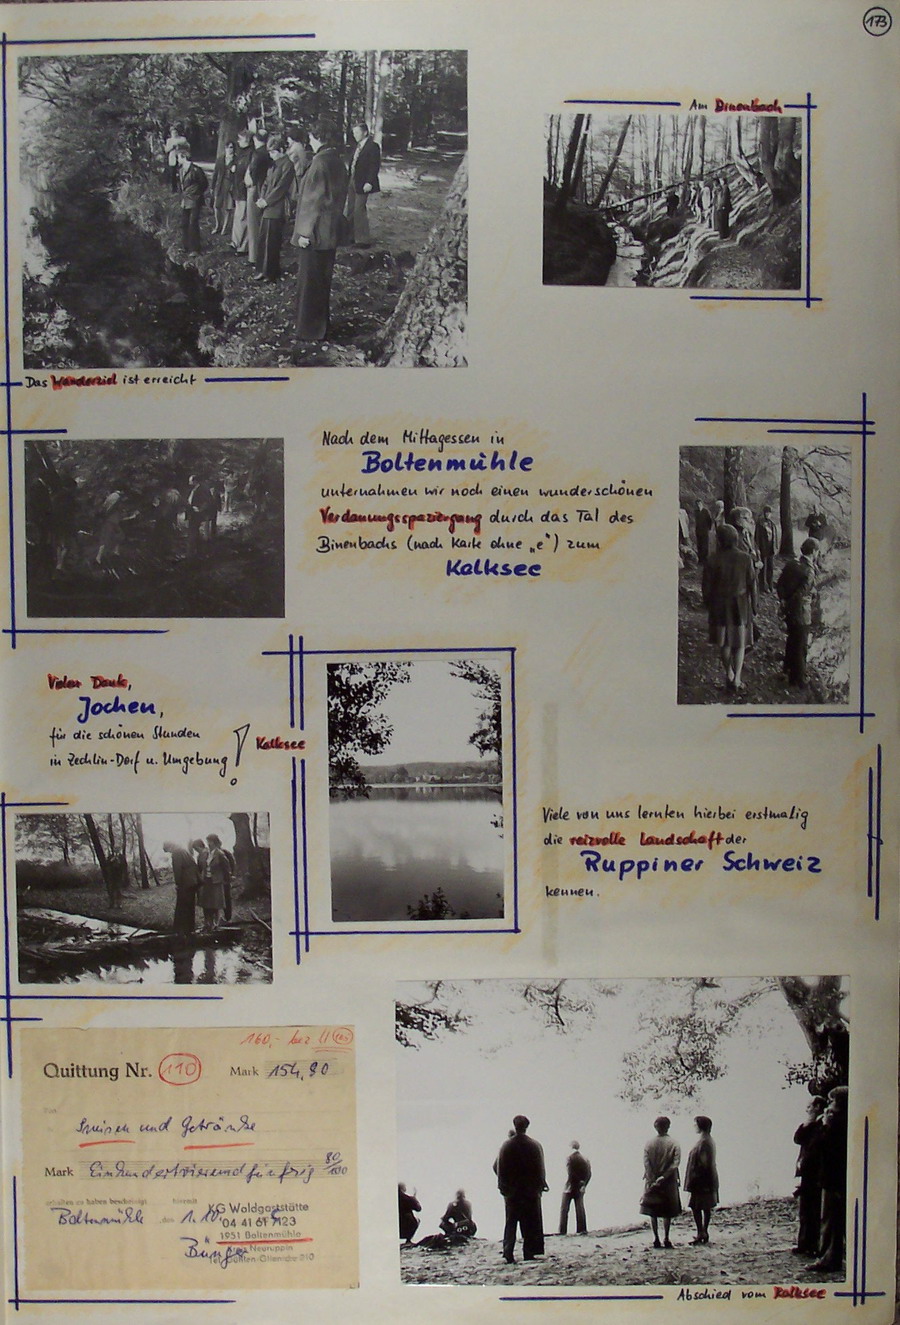 173
Am Binenbach
Das Wanderziel ist erreicht
Nach dem Mittagessen in
Boltenmühle
unternahmen wir noch einen wunderschönen
Verdauungsspaziergang durch das Tal des
Binenbachs (nach Karte ohne „e“) zum
Kalksee
Vielen Dank,
Jochen,
für die schönen Stunden
in Zechlin-Dorf u. Umgebung!
Kalksee
Viele von uns lernten hierbei erstmalig
die reizvolle Landschaft der
Ruppiner Schweiz
kennen.
160,- bez.
Quittung Nr. 110 Mark 154,80
Speisen und Getränke
Mark Einhundertvierundfünfzig 80/100
erhalten zu haben bescheinigt hiermit
Boltenmühle, den 1.10.
KG Waldgaststätte
04 41 61 7123
1951 Boltenmühle
Kreis Neuruppin
Abschied vom Kalksee